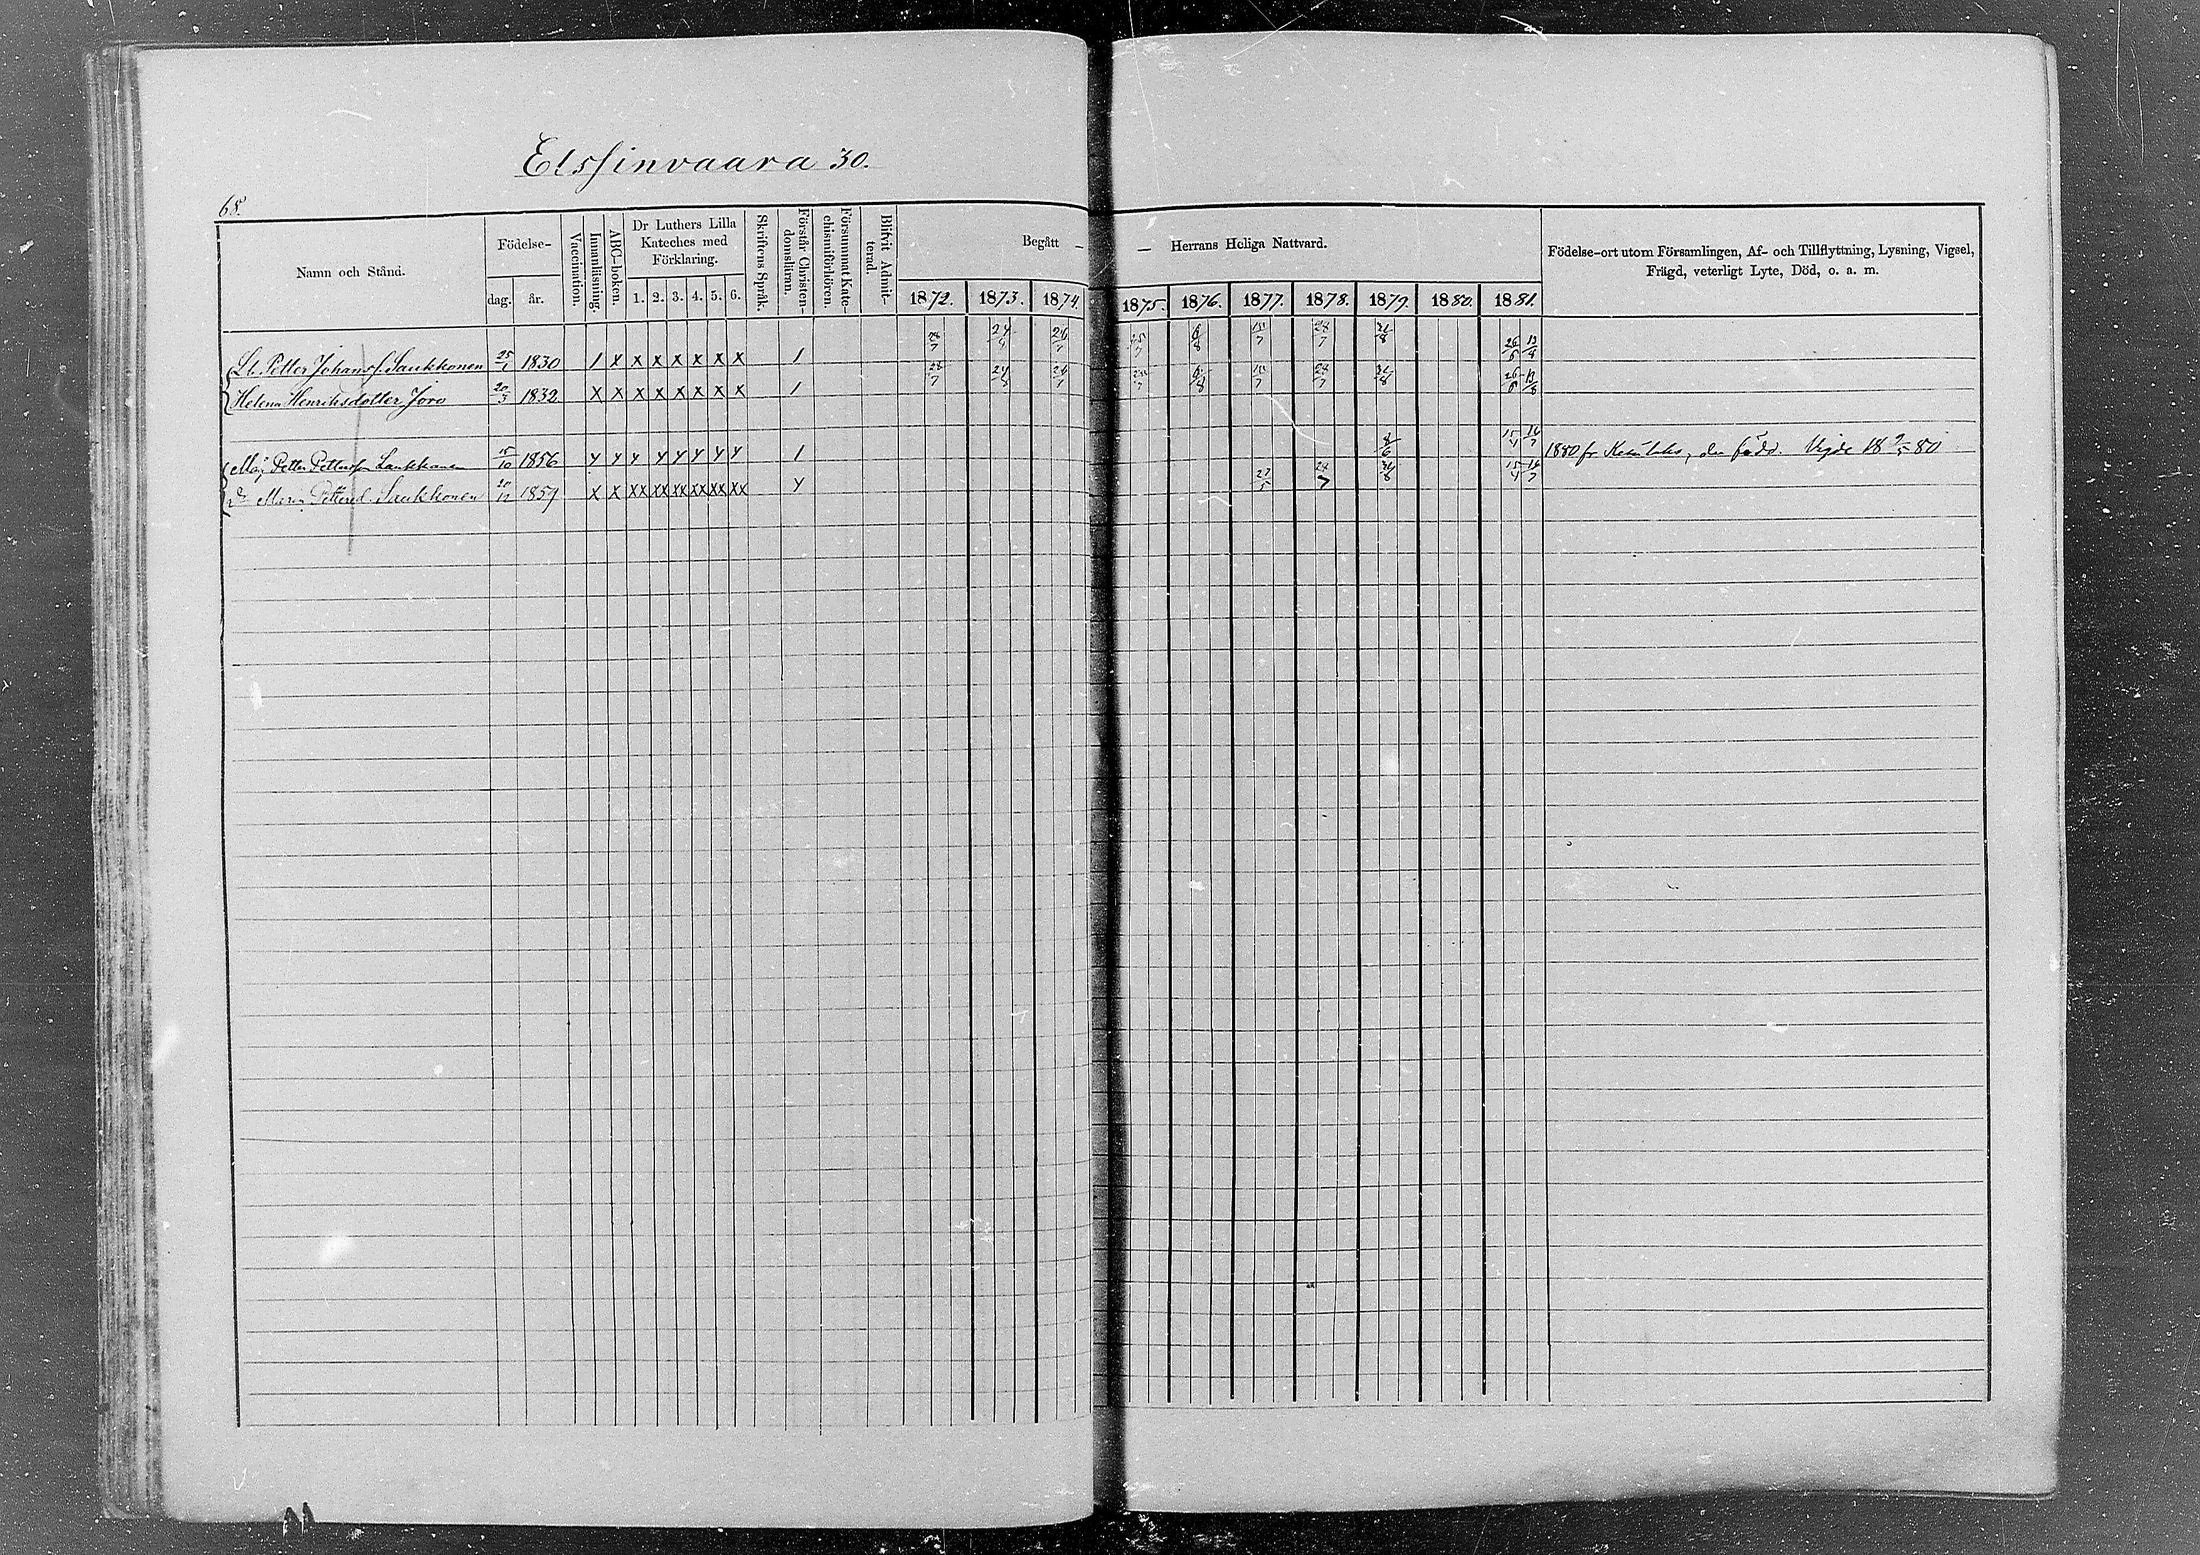 Elssinvaara 30.
68.
Namn och Stånd.
Födelse-
dag. år.
Vaccination.
Innanläsning.
ABC-boken.
Dr Luthers Lilla Kateches med Förklaring.
1. 2. 3. 4. 5. 6.
Skriftens Språk.
Förstår Christendomsläran.
Försummat Katechismiförhören.
Blifvit Admitterad.
Begått — — Herrans Heliga Nattvard.
1872. 1873. 1874. 1875. 1876. 1877. 1878. 1879. 1880. 1881.
Födelse-ort utom Församlingen, Af- och Tillflyttning, Lysning, Vigsel,
Frägd, veterligt Lyte, Död, o. a. m.
Petter Johans Saukkonen 25/1 1830 1 x x x x x x x 1 28/7 6/8 15/7 28/7 26/5
Helena Henriksdotter Joro 20/5 1832 x x x x x x x x 1 28/7 6/8 15/7 28/7
Måg Petter Petterss Laukkanen 1856 y y y y y y y y 1 8/6 15/4 16/7 1880 fr. der född. Vigde 18 9/5 80
Dr Maria Petters d. Saukkonen 20/12 1859 x x xx xx xx xx xx xx y 28/7 15/4 16/7